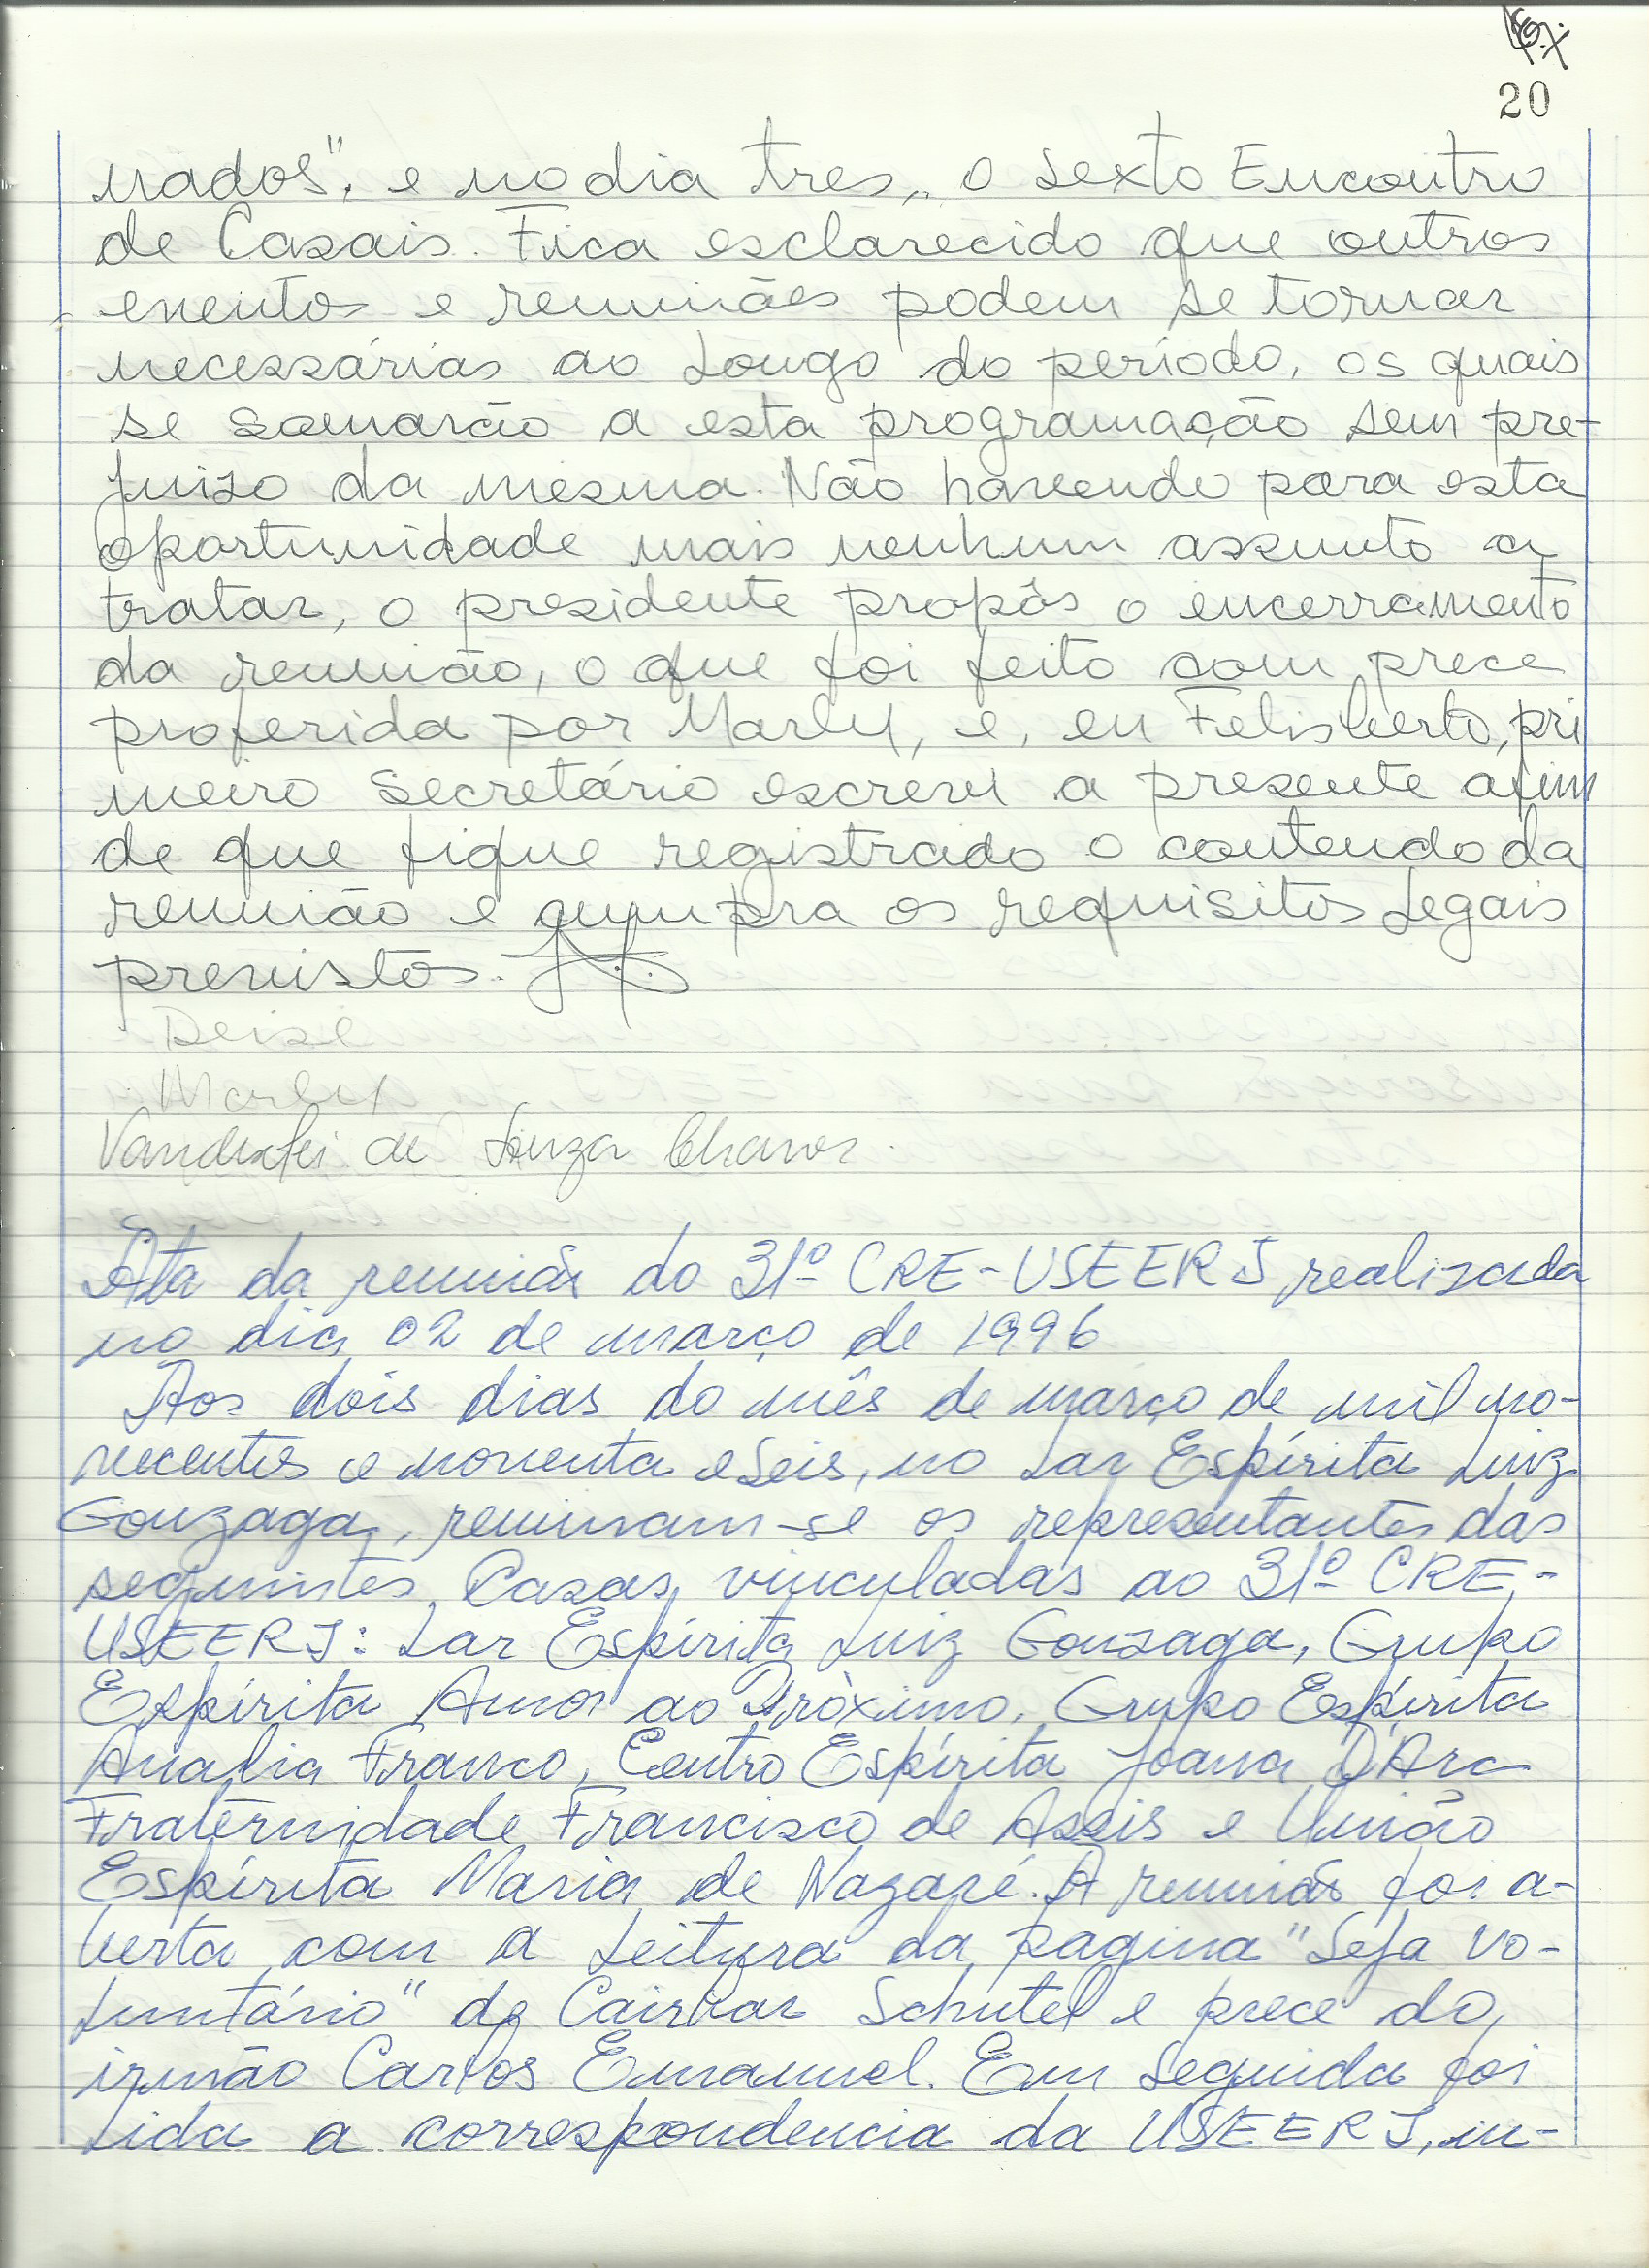 20
nados", e no dia tres, o sexto Encontro
de Casais. Fica esclarecido que outros
eventos e reuniões podem se tornar
necessárias ao longo do período, os quais
se somarão a esta programação sem pre-
juizo da mesma. Não havendo para esta
oportunidade mais nenhum assunto a
tratar, o presidente propôs o encerramento
da reunião, o que foi feito com prece
proferida por Marly, e, eu Felisberto, pri
meiro secretário escrevi a presente afim
de que fique registrado o conteudo da
reunião e cumpra os requisitos legais
previstos.
Deise
Marly
Vanderlei de Souza Chaves.
Ata da reunião do 31º CRE-USEERJ realizada
no dia 02 de março de 1996
Aos dois dias do mês de março de mil no-
vecentos e noventa e seis, no Lar Espírita Luiz
Gonzaga, reuniram-se os representantes das
seguintes Casas vinculadas ao 31º CRE-
USEERJ: Lar Espírita Luiz Gonzaga, Grupo
Espírita Amor ao Próximo, Grupo Espírita
Analia Franco, Centro Espírita Joana D'Arc
Fraternidade Francisco de Assis e União
Espírita Maria de Nazaré. A reunião foi a-
berta com a leitura da pagina "Seja Vo-
luntário" de Cairbar Schutel e prece do
irmão Carlos Emanuel. Em seguida foi
lida a correspondencia da USEERJ, in-